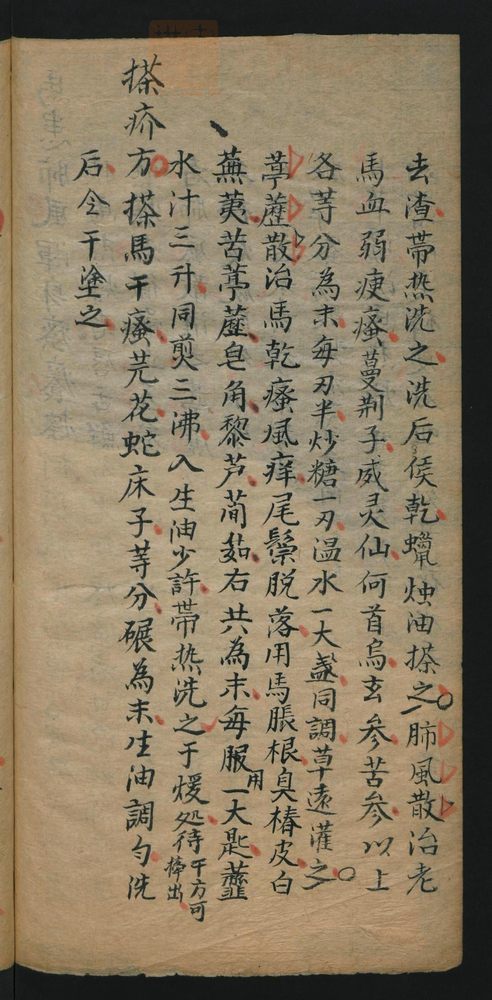 去渣帶热洗之洗后侯乾蠟烛油搽之○肺風散治老
馬血弱瘦瘙蔓荆子威灵仙何首烏玄参苦参以上
各等分為末每刃半炒糖一刃温水一大盞同調草遠灌之○
葶藶散治馬乾瘙風痒尾鬃脱落用馬脹根臭椿皮白
蕪荑苦葶藶皂角黎芦䕞茹右共為末每服用一大匙虀
水汁三升同煎三沸入生油少許帶热洗之于煖処待干方可掃出
搽疥方搽馬干瘙芫花蛇床子等分碾為末生油調勻洗
后令干塗之